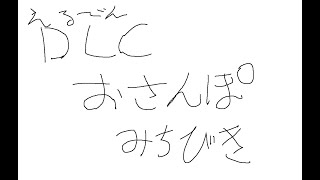 えるでん
DLC
おさんぽ
みちびき